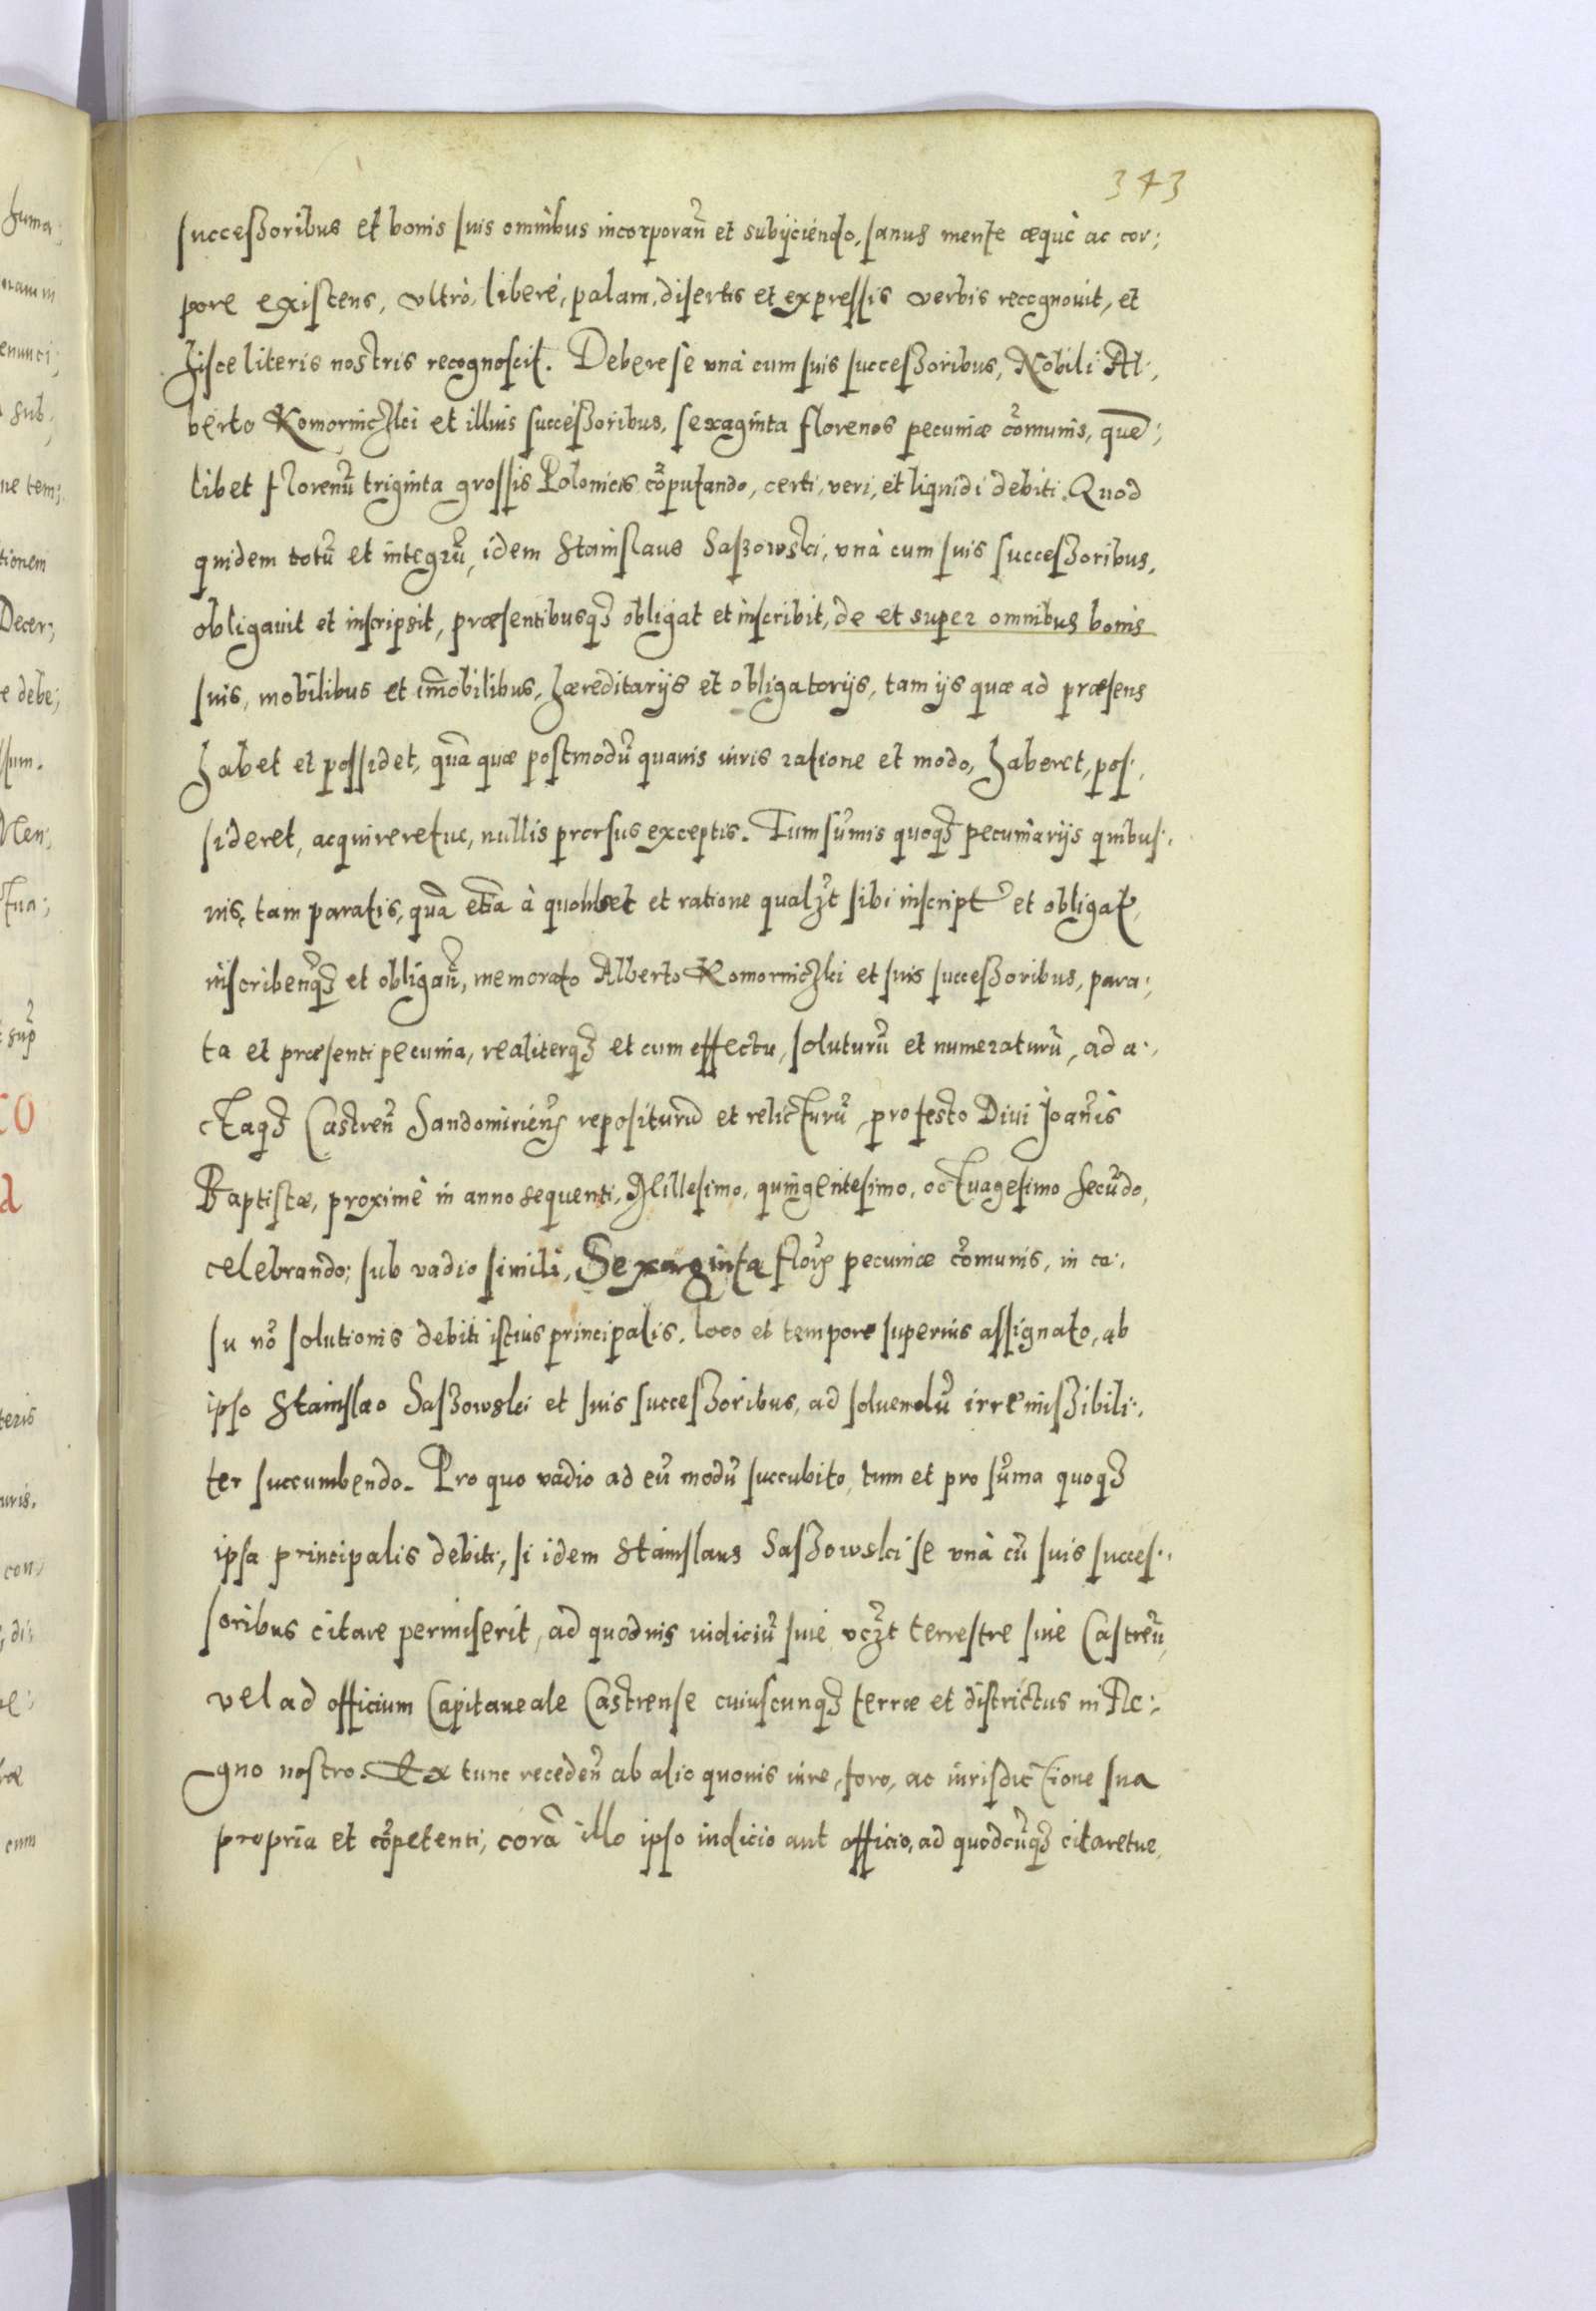 343
successoribus et bonis suis omnibus incorporan̄ et subijciendo, sanus mente æquè ac cor;
pore existens, vltrò, liberè, palam, disertis et expressis verbis recognouit, et
hisce literis nostris recognoscit. Debere sè vnà cum suis successoribus, Nobili Al;
berto Komorniczki et illius successoribus, sexaginta florenos pecuniæ cōmunis, quē;
libet florenū triginta grossis Polonicis cōputando, certi, veri, et liquidi debiti. Quod
quidem totū et integrū, idem Stanislaus Saszowski, vnà cum suis successoribus,
obligauit et inscripsit, præsentibusqз obligat et inscribit, de et super omnibus bonis
suis, mobilibus et im̄obilibus, hæreditarijs et obligatorijs, tam ijs quæ ad præsens
habet et possidet, quā quæ postmodū quauis iuris ratione et modo, haberet, pos;
sideret, acquireretue, nullis prorsus exceptis. Tum sūmis quoqз pecuniarijs quibus;
uis, tam paratis, quā etiā à quolibet et ratione qualзt sibi inscript̄ et obligat̄,
inscribenqз et obligan̄, memorato Alberto Komorniczki et suis successoribus, para;
ta et præsenti pecunia, realiterqз et cum effectu, soluturū et numeraturū, ad a;
ctaqз Castren̄ Sandomirien̄ repositurū et relicturū, pro festo Diui Joānis
Baptistæ, proximè in anno sequenti, Millesimo, quingentesimo, octuagesimo secūdo,
celebrando; sub vadio simili, Sexaginta flor̄ pecuniæ cōmunis, in ca;
su nō solutionis debiti istius principalis, loco et tempore superius assignato, ab
ipso Stanislao Saszowski et suis successoribus, ad soluendū irremissibili;
ter succumbendo. Pro quo vadio ad eū modū succubito, tum et pro sūma quoqз
ipsa principalis debiti, si idem Stanislaus Saszowski se vnà cū suis succes;
soribus citare permiserit, ad quoduis iudiciū siue vcзt terrestre siue Castren̄,
vel ad officium Capitaneale Castrense cuiuscunqз terræ et districtus in Re;
gno nostro. Ex tunc receden̄ ab alio quouis iure, foro, ac iurisdictione sua
propria et cōpetenti, corā illo ipso iudicio aut officio, ad quodcūqз citaretue,